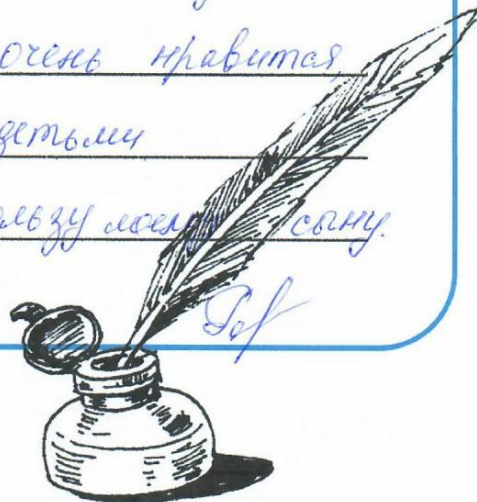 очень нравится
детьми
пользу моему сыну.